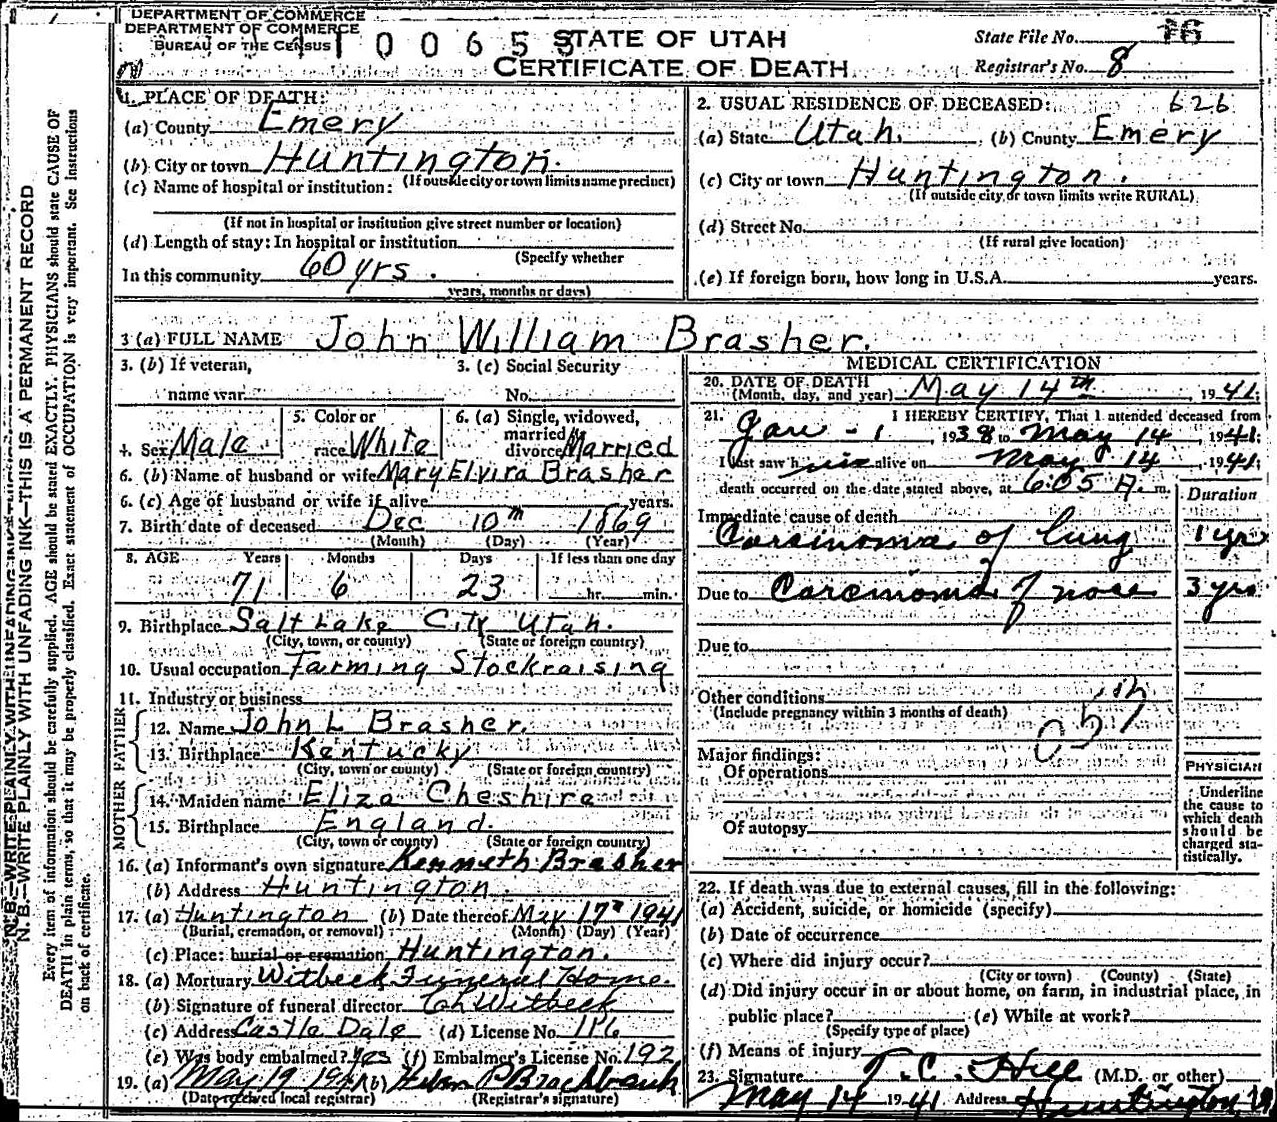 DEPARTMENT OF COMMERCE
DEPARTMENT OF COMMERCE
BUREAU OF THE CENSUS
100653
STATE OF UTAH
CERTIFICATE OF DEATH
State File No.
Registrar's No. 8
N.B.—WRITE PLAINLY WITH UNFADING INK—THIS IS A PERMANENT RECORD
Every item of information should be carefully supplied. AGE should be stated EXACTLY. PHYSICIANS should state CAUSE OF
DEATH in plain terms, so that it may be properly classified. Exact statement of OCCUPATION is very important. See Instructions
on back of certificate.
1. PLACE OF DEATH:
(a) County Emery
(b) City or town Huntington.
(If outside city or town limits name precinct)
(c) Name of hospital or institution:
(If not in hospital or institution give street number or location)
(d) Length of stay: In hospital or institution
(Specify whether
In this community 60 yrs.
years, months or days)
2. USUAL RESIDENCE OF DECEASED: 626
(a) State Utah. (b) County Emery
(c) City or town Huntington.
(If outside city or town limits write RURAL)
(d) Street No.
(If rural give location)
(e) If foreign born, how long in U.S.A. years.
3 (a) FULL NAME John William Brasher.
3. (b) If veteran,
name war
3. (c) Social Security
No.
4. Sex Male.
5. Color or
race White
6. (a) Single, widowed,
married
divorced Married
6. (b) Name of husband or wife Mary Elvira Brasher
6. (c) Age of husband or wife if alive years.
7. Birth date of deceased Dec 10th 1869
(Month) (Day) (Year)
8. AGE Years Months Days If less than one day
71 6 23 hr. min.
9. Birthplace Salt Lake City Utah.
(City, town, or county) (State or foreign country)
10. Usual occupation Farming Stockraising
11. Industry or business
FATHER
12. Name John L Brasher.
13. Birthplace Kentucky
(City, town or county) (State or foreign country)
MOTHER
14. Maiden name Eliza Cheshire
15. Birthplace England.
(City, town or county) (State or foreign country)
16. (a) Informant's own signature Kenneth Brasher
(b) Address Huntington.
17. (a) Huntington (b) Date thereof May 17th 1941
(Burial, cremation, or removal) (Month) (Day) (Year)
(c) Place: burial or cremation Huntington.
18. (a) Mortuary Witbeck Funeral Home.
(b) Signature of funeral director Witbeck
(c) Address Castle Dale (d) License No. 186
(e) Was body embalmed? Yes (f) Embalmer's License No. 192
19. (a) May 19 1941 (b)
(Date received local registrar) (Registrar's signature)
MEDICAL CERTIFICATION
20. DATE OF DEATH
(Month, day, and year) May 14th, 1941.
21. I HEREBY CERTIFY, That I attended deceased from
Jan - 1, 1938 to May 14, 1941;
I last saw him alive on May 14, 1941;
death occurred on the date stated above, at 6:05 A. m.
Duration
Immediate cause of death
Carcinoma of lung 1 yr
Due to Carcinoma of nose 3 yrs
Due to
Other conditions
(Include pregnancy within 3 months of death)
Major findings:
Of operations
Of autopsy
PHYSICIAN
Underline
the cause to
which death
should be
charged sta-
tistically.
22. If death was due to external causes, fill in the following:
(a) Accident, suicide, or homicide (specify)
(b) Date of occurrence
(c) Where did injury occur?
(City or town) (County) (State)
(d) Did injury occur in or about home, on farm, in industrial place, in
public place? (e) While at work?
(Specify type of place)
(f) Means of injury
23. Signature T. C. Hill (M.D. or other)
May 14 1941 Address Huntington,